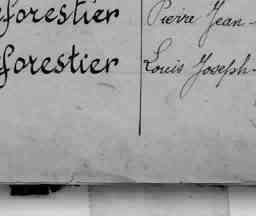 eforestier Pierre Jean-
eforestier Louis Joseph-